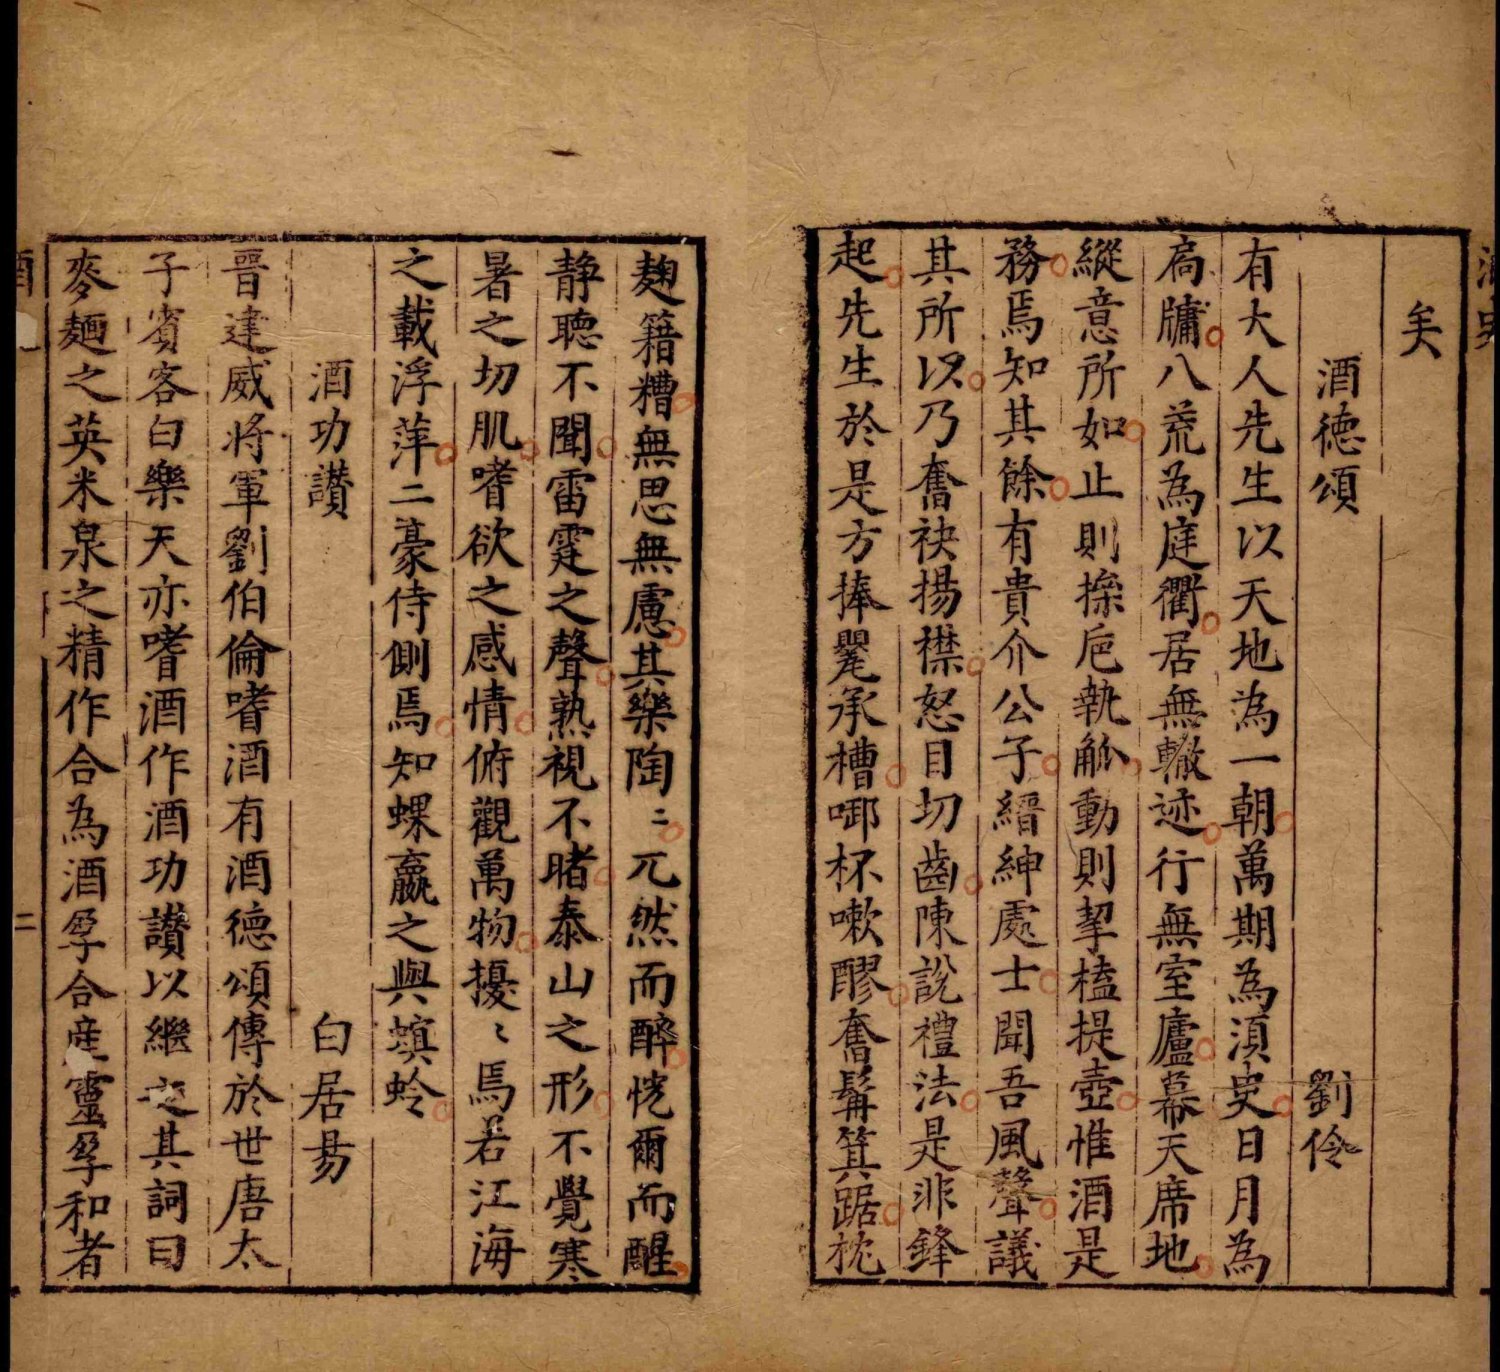 矣
酒德頌　劉伶
有大人先生以天地為一朝萬期為湏臾日月為
扃牖八荒為庭衢居無轍迹行無室廬幕天席地
縱意所如止則操卮執觚動則挈榼提壺惟酒是
務焉知其餘有貴介公子縉紳處士聞吾風聲議
其所以乃奮袂揚襟怒目切齒陳說禮法是非鋒
起先生於是方捧甖承槽啣杯嗽醪奮髯箕踞枕
麹籍糟無思無慮其樂陶〻兀然而醉恍爾而醒
静聽不聞雷霆之聲熟視不睹泰山之形不覺寒
暑之切肌嗜欲之感情俯觀萬物擾〻焉若江海
之載浮萍二豪侍側焉知蜾蠃之與螟蛉
酒功讃　白居昜
晉建威將軍劉伯倫嗜酒有酒德頌傳於世唐太
子賓客白樂天亦嗜酒作酒功讃以繼之其詞曰
麥麵之英米泉之精作合為酒孕合産靈孕和者
二